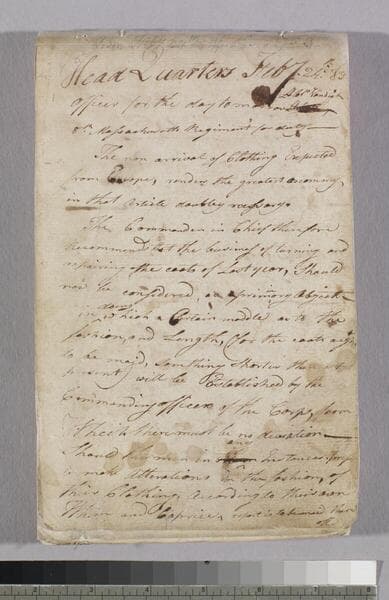 Head Quarters Feby 24th 83
Officer for the day tomorrow
8th Massachusetts Regiment for duty
The non arrival of Clothing Expected
from Europe, renders the greatest oconomy
in that Article doubley nessary
The Commander in Chief therefore
Recommends that the business of turning and
repairing the coats of Last year, Should
now be considered, as a primary Object
in doing which a Certain moddle as to the
fashion, and Length, (for the coats ought
to be maid, Somthing Shorter than at
present) will be Established by the
Commanding officer of the Corps, from
which there must be no deveation
Should the men in any Instances,
to make Alterations in the fashion, of
their Clothing, According to their own
Whim and Caprice